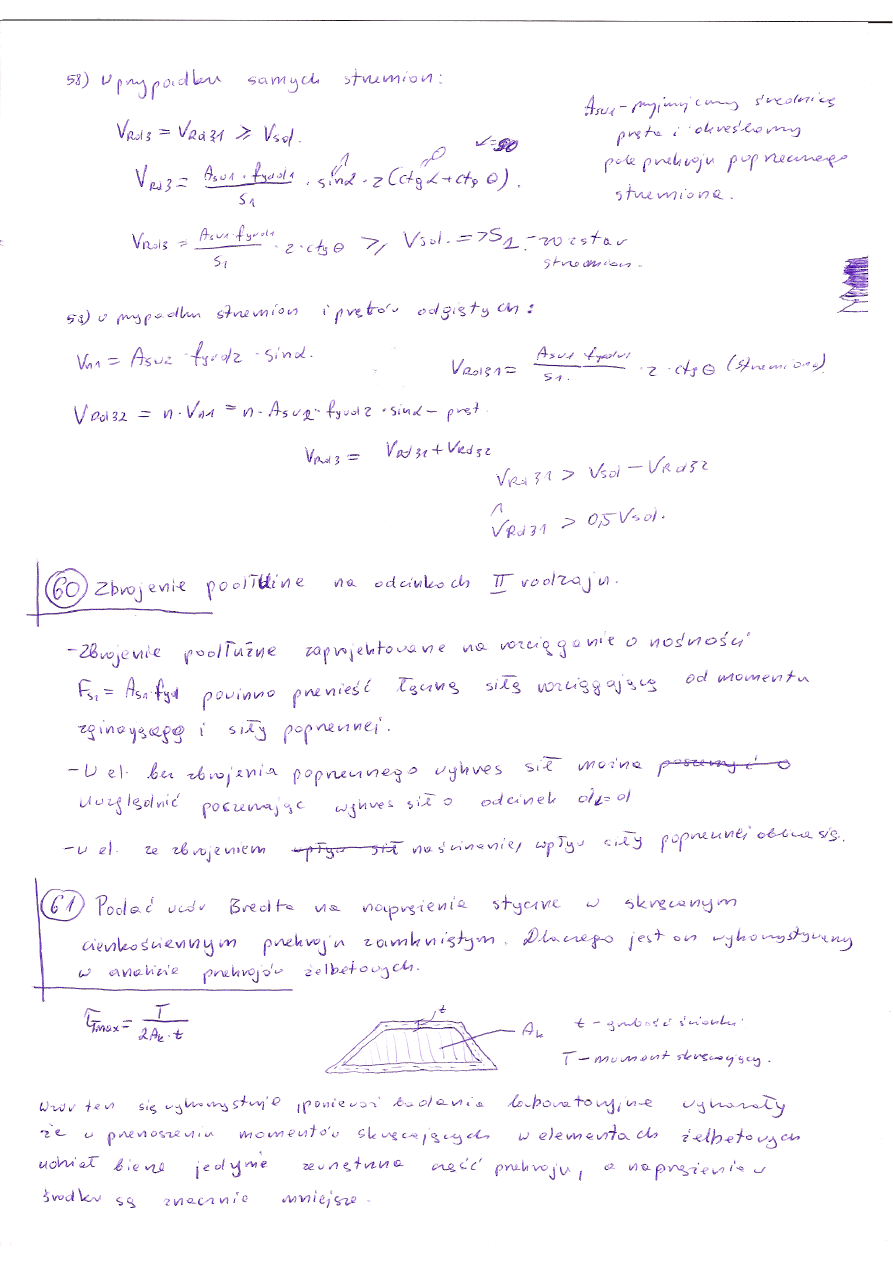 58) W przypadku samych strzemion:
Asw1 – przyjmujemy średnicę
pręta i określamy
pole przekroju poprzecznego
strzemiona.
VRd3 = VRd31 ≥ Vsd.
α=90
VRd3 = Asw1 · fywd1 / s1 · sinα · z (ctgα + ctgθ).
1 0
VRd3 = Asw1 · fywd1 / s1 · z · ctgθ ≥ Vsd. => S1 – rozstaw
strzemion.
59) w przypadku strzemion i prętów odgiętych:
Vn1 = Asw2 · fywd2 · sinα.
VRd31 = Asw1 · fywd1 / s1. · z · ctgθ (strzemiona)
VRd32 = n · Vn1 = n · Asw2 · fywd2 · sinα – pręt.
VRd3 = VRd31 + VRd32
VRd31 > Vsd – VRd32
∧
VRd31 > 0,5 Vsd.
60 Zbrojenie podłużne na odcinkach II rodzaju.
– Zbrojenie podłużne zaprojektowane na rozciąganie o nośności
Fs1 = As1 · fyd powinno przenieść łączną siłę rozciągającą od momentu
zginającego i siły poprzecznej.
– W el. bez zbrojenia poprzecznego wykres sił można poszerzyć o
uwzględnić poszerzając wykres sił o odcinek aL = d
– w el. ze zbrojeniem wpływ sił na ścinanie, wpływ siły poprzecznej oblicza się.
61 Podać wzór Bredta na naprężenia styczne w skręcanym
cienkościennym przekroju zamkniętym. Dlaczego jest on wykorzystywany
w analizie przekrojów żelbetowych.
τTmax = T / 2Ak · t
t
Ak
t – grubość ścianki
T – moment skręcający.
Wzór ten się wykorzystuje, ponieważ badania laboratoryjne wykazały
że w przenoszeniu momentów skręcających w elementach żelbetowych
udział bierze jedynie zewnętrzna część przekroju, a naprężenia w
środku są znacznie mniejsze.